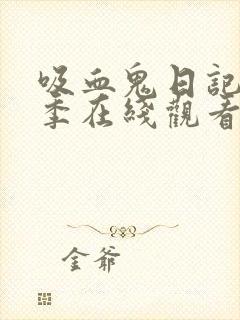 吸血鬼日記
季在綫觀看
金爺